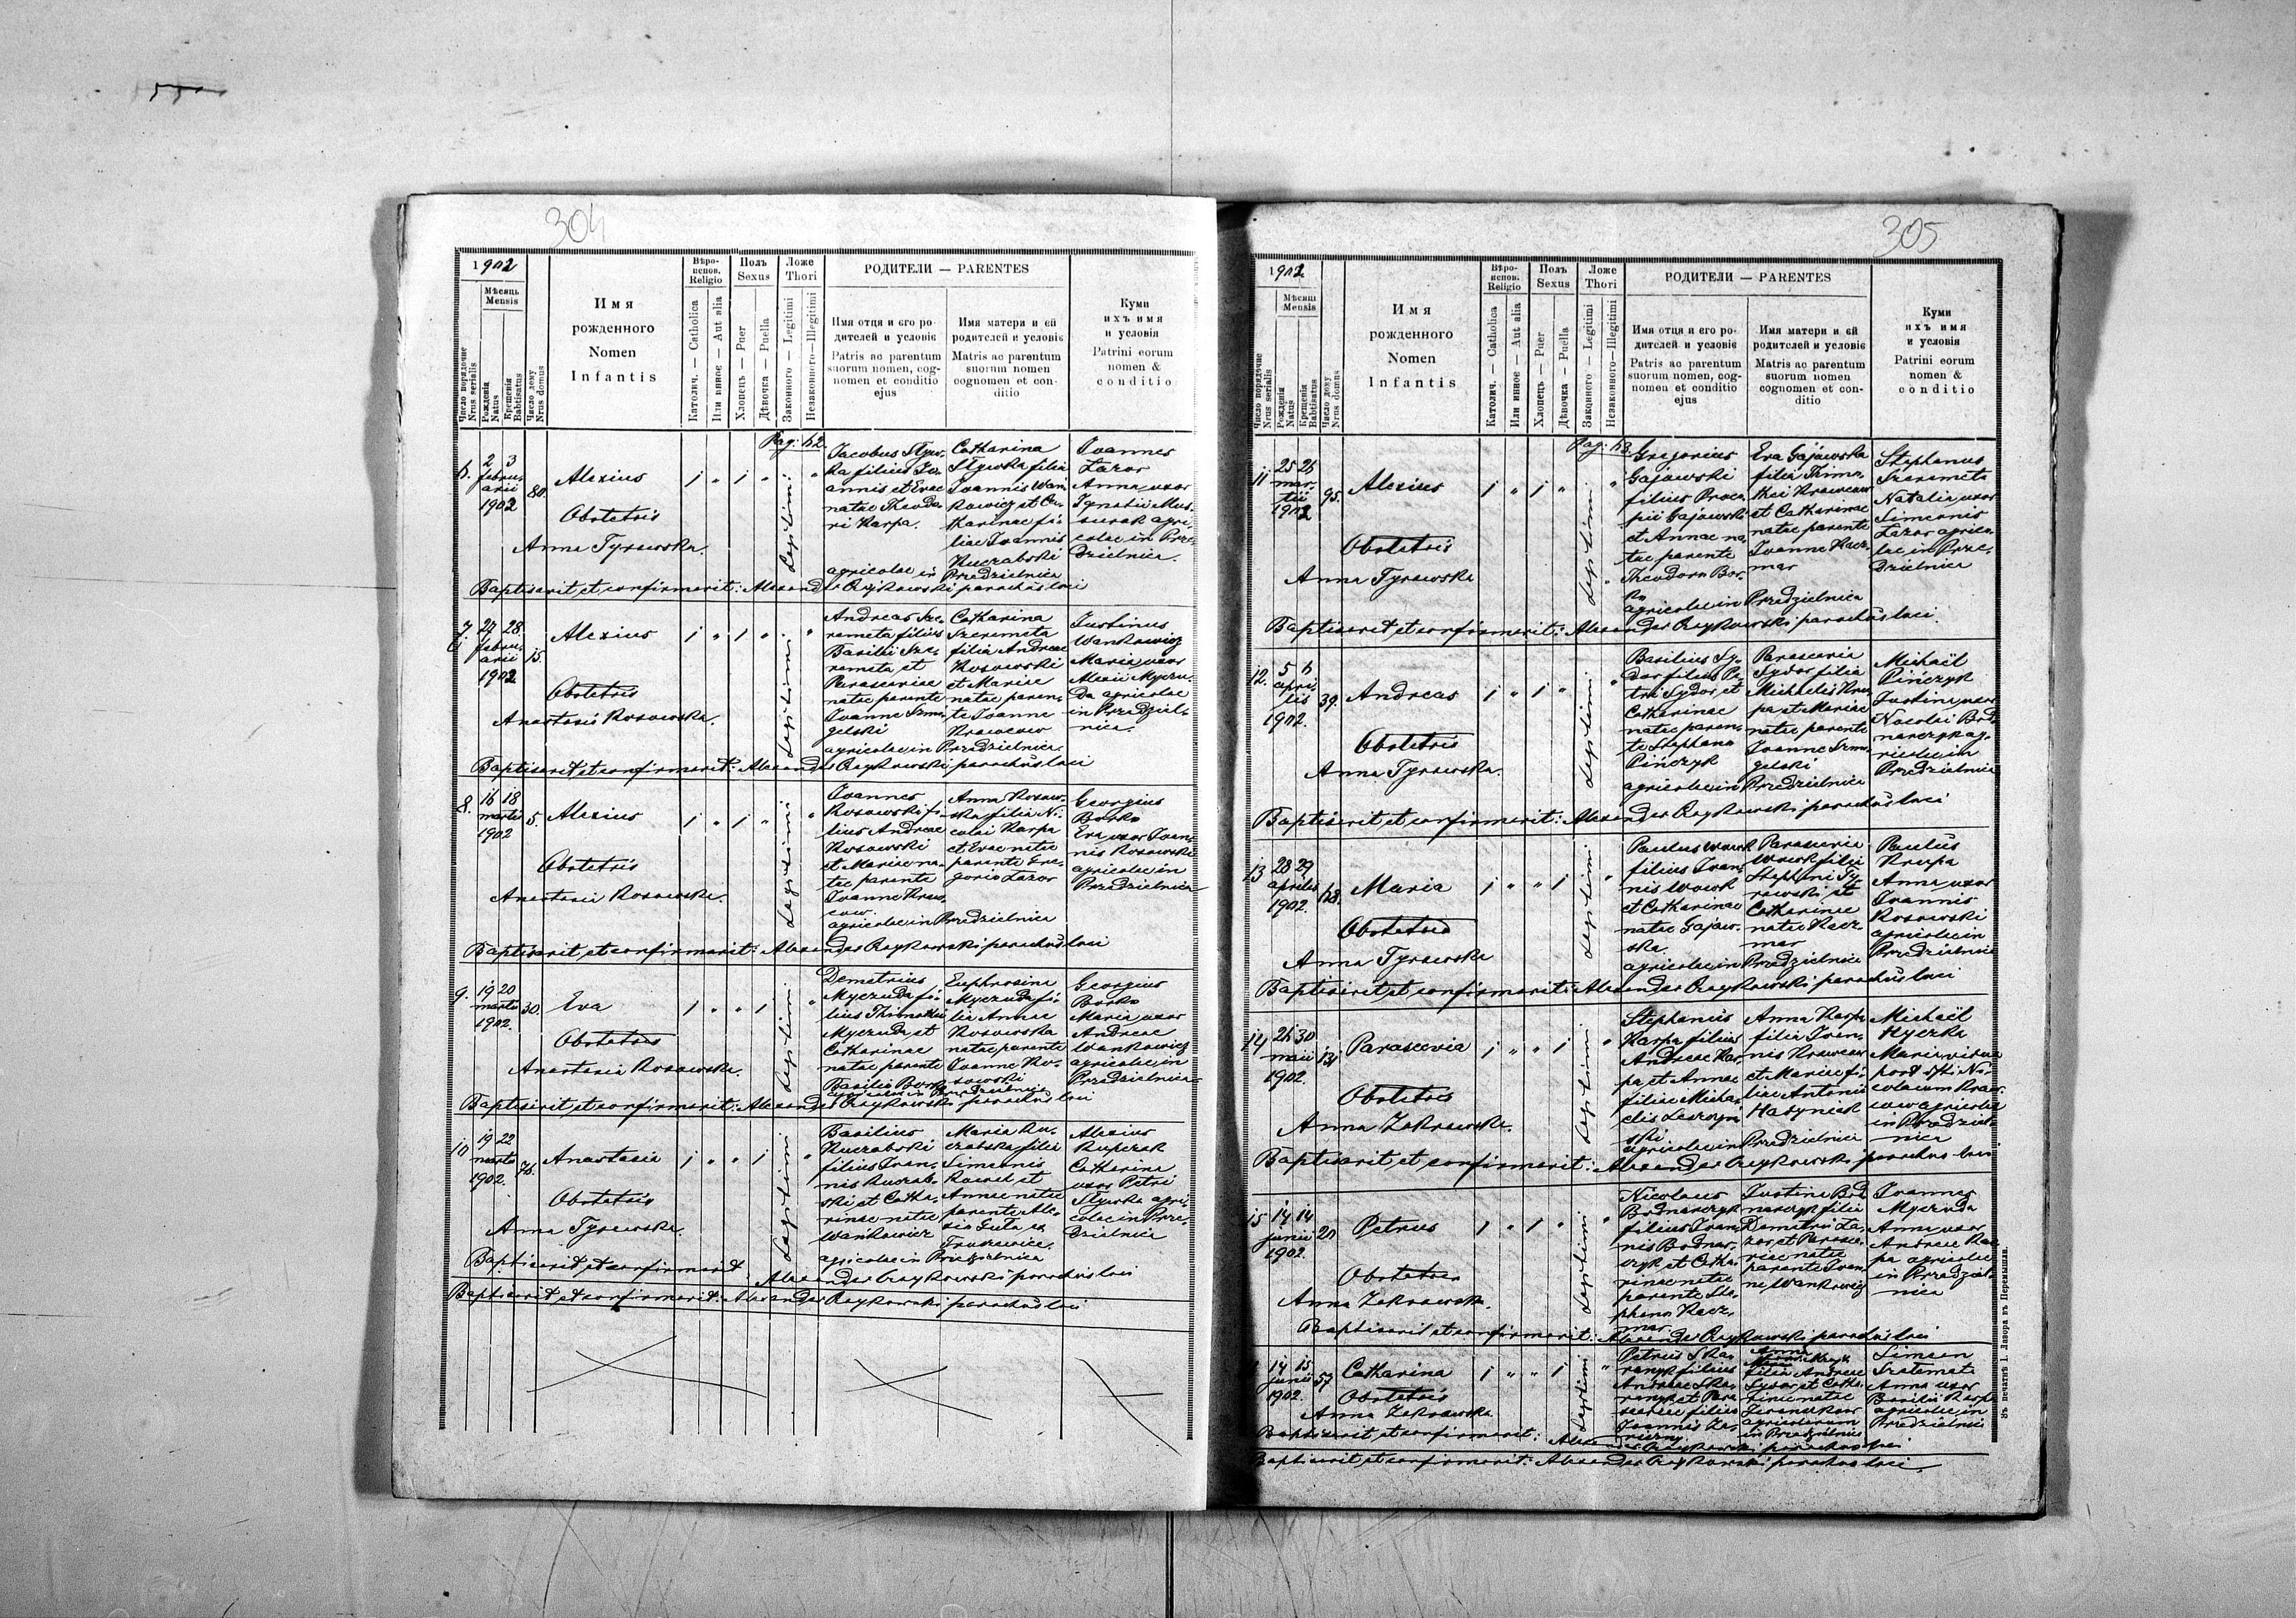 304
1902
Мѣсяць
Mensis
Число порядочне
Nrus serialis
Рожденія
Natus
Крещенія
Babtisatus
Число дому
Nrus domus
Имя
рожденного
Nomen
Infantis
Вѣро-
испов.
Religio
Католич. — Catholica
Или инное — Aut alia
Полъ
Sexus
Хлопецъ — Puer
Дѣвочка — Puella
Ложе
Thori
Законного — Legitimi
Незаконного — Illegitimi
РОДИТЕЛИ — PARENTES
Имя отця и его ро-
дителей и условіє
Patris ac parentum
suorum nomen, cog-
nomen et conditio
ejus
Имя матери и єй
родителей и условіє
Matris ac parentum
suorum nomen
cognomen et con-
ditio
Куми
ихъ имя
и условія
Patrini eorum
nomen &
conditio
Pag: 42.
6.
2 3
febru-
arii
1902
80.
Alexius
Obstetris
Anna Tyrawska.
1 " 1 "
Legitimi
"
filius Jo-
annis et Evae
natae Theodo-
ri Karpa.
Catharina
filia
Joannis Wań-
kowicz et Ca-
tharinae fi-
liae Joannis
Kuczabski
agricolae in Przedzielnica
Joannes
Lazor
Anna uxor
Ignatii
agri-
colae in Prze-
dzielnica.
Baptisavit et confirmavit: Alexander parochus loci
7.
27 28.
febru-
arii
1902
15.
Alexius
Obstetris
Anastasia Kosowska.
1 " 1 "
Legitimi
"
Andreas Sze-
remeta filius
Basilii Sze-
remeta et
Parasceviae
natae parente
Joanne Szmi-
gelski
Catharina
Szeremeta
filia Andreae
Kosowski
et Mariae
natae paren-
te Joanne
Krawcow
agricolae in Przedzielnica.
Justinus
Wańkowicz
Maria uxor
Alexii Myczu-
da agricolae
in Przedziel-
nica.
Baptisavit et confirmavit: Alexander parochus loci
8.
16 18
martii
1902
5.
Alexius
Obstetris
Anastasia Kosowska.
1 " 1 "
Legitimi
"
Joannes
Kosowski fi-
lius Andreae
Kosowski
et Mariae na-
tae parente
Joanne Kraw-
cow.
Anna Kosow-
ska filia Ni-
colai Karpa
et Evae natae
parente Gre-
gorio Lazor
agricolae in Przedzielnica
Georgius
Borko
Eva uxor Joan-
nis Kosowski
agricolae in
Przedzielnica
Baptisavit et confirmavit: Alexander parochus loci
9.
19 20
martii
1902.
30.
Eva
Obstetris
Anastasia Kosowska.
1 " " 1
Legitimi
"
Demetrius
Myczuda fi-
lius Thimothei
Myczuda et
Catharinae
natae parente
Basilio Borko
Euphrosina
Myczuda fi-
lia Annae
Kosowska
natae parente
Joanne Ko-
sowski
agricolae in Przedzielnica
Georgius
Borko
Maria uxor
Andreae
Wańkowicz
agricolae in
Przedzielnica
Baptisavit et confirmavit: Alexander parochus loci
10
19 22
martii
1902.
76.
Anastasia
Obstetris
Anna Tyrawska.
1 " " 1
Legitimi
"
Basilius
Kuczabski
filius Joan-
nis Kuczab-
ski et Catha-
rinae natae
Wańkowicz
Maria Ku-
czabska filia
Simeonis
et
Annae natae
parente Ale-
xio Guta ex
agricolae in Przedzielnica
Alexius
Catharina
uxor Petri
agri-
colae in Prze-
dzielnica
Baptisavit et confirmavit
Alexander parochus loci
Baptisavit et confirmavit: Alexander parochus loci
305
1902
Мѣсяць
Mensis
Число порядочне
Nrus serialis
Рожденія
Natus
Крещенія
Babtisatus
Число дому
Nrus domus
Имя
рожденного
Nomen
Infantis
Вѣро-
испов.
Religio
Католич. — Catholica
Или инное — Aut alia
Полъ
Sexus
Хлопецъ — Puer
Дѣвочка — Puella
Ложе
Thori
Законного — Legitimi
Незаконного — Illegitimi
РОДИТЕЛИ — PARENTES
Имя отця и его ро-
дителей и условіє
Patris ac parentum
suorum nomen, cog-
nomen et conditio
ejus
Имя матери и єй
родителей и условіє
Matris ac parentum
suorum nomen
cognomen et con-
ditio
Куми
ихъ имя
и условія
Patrini eorum
nomen &
conditio
Pag: 43.
11
25 26
mar-
tii
1902
95.
Alexius
Obstetris
Anna Tyrawska
1 " 1 "
Legitimi
"
Gregorius
Gajowski
filius Proco-
pii Gajowski
et Annae na-
tae parente
Theodoro Bor-
ko
Eva Gajowska
filia Thimo-
thei Krawcow
et Catharinae
natae parente
Joanne Kacz-
mar
agricolae in Przedzielnica
Stephanus
Szeremeta
Natalia uxor
Simeonis
Lazor agrico-
lae in Prze-
dzielnica
Baptisavit et confirmavit: Alexander parochus loci.
12.
5 6
apri-
lis
1902.
39.
Andreas
Obstetris
Anna Tyrawska.
1 " 1 "
Legitimi
"
Basilius Sy-
dor filius Pe-
tri Sydor et
Catharinae
natae paren-
te Stephano
Pińczyk
Parascevia
Sydor filia
Michaelis Kru-
pa et Mariae
natae parente
Joanne Szmi-
gelski
agricolae in Przedzielnica
Michaël
Pińczyk
Justina uxor
Nicolai Bod-
narczyk ag-
ricolae in
Przedzielnica
Baptisavit et confirmavit: Alexander parochus loci
13
28 29
aprilis
1902.
48.
Maria
Obstetris
Anna Tyrawska
1 " " 1
Legitimi
"
Paulus Wowk
filius Joan-
nis Wowk
et Catharinae
natae Gajow-
ska.
Parascevia
Wowk filia
Stephani Ty-
rawski et
Catharinae
natae Kacz-
mar
agricolae in Przedzielnica
Paulus
Krupa
Anna uxor
Joannis
Kosowski
agricolae in
Przedzielnica
Baptisavit et confirmavit: Alexander parochus loci
14
26 30
maii
1902.
Parascevia
Obstetris
Anna Zakrowska.
1 " " 1
Legitimi
"
Stephanus
Karpa filius
Andreae Kar-
pa et Annae
filiae Micha-
elis
Anna Karpa
filia Joan-
nis Krawcow
et Mariae fi-
liae Antonii
Hadyniak
agricolae in Przedzielnica
Michaël
Hyczka
Maria vidua
post Ni-
colaum Kraw-
cow agricolae
in Przedziel-
nica
Baptisavit et confirmavit: Alexander parochus loci
15
14 14
junii
1902.
20
Petrus
Obstetris
Anna Zakrowska.
1 " 1 "
Legitimi
"
Nicolaus
Bodnarczyk
filius Joan-
nis Bodnar-
czyk et Catha-
rinae natae
parente Ste-
phano Kacz-
mar.
Justina Bod-
narczyk filia
Demetrii La-
zor et Parasce-
viae natae
parente Joan-
ne Wańkowicz
Joannes
Myczuda
Anna uxor
Andreae
agricolae
in Przedziel-
nica
Baptisavit et confirmavit: Alexander parochus loci
14 15
junii
1902.
57
Catharina
Obstetris
Anna Zakrowska
1 " " 1
Legitimi
"
Petrus
filius
Andreae
et Para-
sceviae filiae
Joannis
Anna
filia Andreae
Sydor et Catha-
rinae natae
agricolarum
in Przedzielnica
Simeon
Szeremeta
Anna uxor
Basilii Karpa
agricolae in
Przedzielnica
Baptisavit et confirmavit: Alexander parochus loci
Baptisavit et confirmavit: Alexander parochus loci
Въ печатнѣ І. Лазора въ Перемышли.